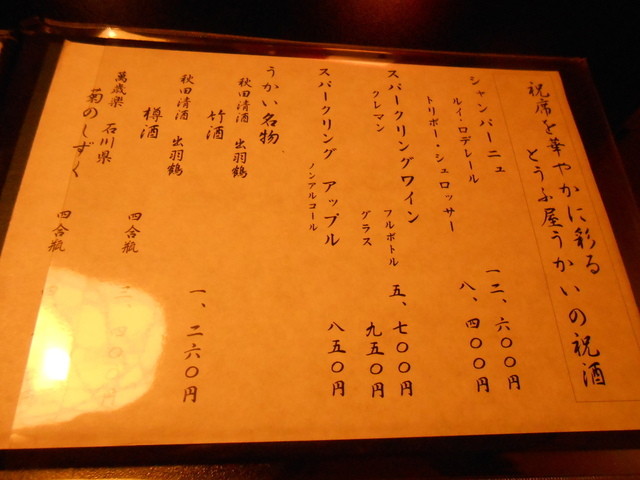 祝席を華やかに彩る
とうふ屋うかいの祝酒
シャンパーニュ
ルイ・ロデレール 一二、六〇〇円
トリボー・シュロッサー 八、四〇〇円
スパークリングワイン
クレマン フルボトル 五、七〇〇円
グラス 九五〇円
スパークリング アップル
ノンアルコール 八五〇円
うかい名物
秋田清酒 出羽鶴
竹酒 一、二六〇円
秋田清酒 出羽鶴
樽酒 四合瓶
萬歳楽 石川県
菊のしずく 四合瓶